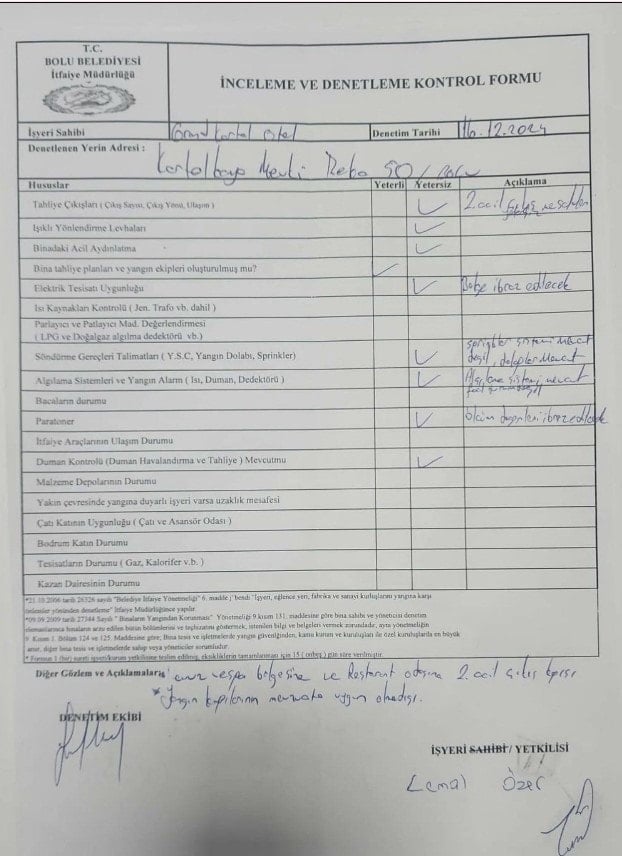 T.C.
BOLU BELEDİYESİ
İtfaiye Müdürlüğü
İNCELEME VE DENETLEME KONTROL FORMU
İşyeri Sahibi Grand Kartal Otel Denetim Tarihi 16.12.2024
Denetlenen Yerin Adresi : Kartalkaya Mevki
Hususlar Yeterli Yetersiz Açıklama
Tahliye Çıkışları ( Çıkış Sayısı, Çıkış Yönü, Ulaşım ) ✓ 2. acil
Işıklı Yönlendirme Levhaları ✓
Binadaki Acil Aydınlatma ✓
Bina tahliye planları ve yangın ekipleri oluşturulmuş mu? ✓
Elektrik Tesisatı Uygunluğu ✓ Belge ibraz edilecek
Isı Kaynakları Kontrolü ( Jen. Trafo vb. dahil )
Parlayıcı ve Patlayıcı Mad. Değerlendirmesi
( LPG ve Doğalgaz algılma dedektörü vb.)
Söndürme Gereçleri Talimatları ( Y.S.C, Yangın Dolabı, Sprinkler) ✓ sistemi mevcut
değil, dolaplar mevcut
Algılama Sistemleri ve Yangın Alarm ( Isı, Duman, Dedektörü ) ✓ Algılama sistemi mevcut
Bacaların durumu
Paratoner ✓ ölçüm ibraz edilecek
İtfaiye Araçlarının Ulaşım Durumu
Duman Kontrolü (Duman Havalandırma ve Tahliye ) Mevcutmu ✓
Malzeme Depolarının Durumu
Yakın çevresinde yangına duyarlı işyeri varsa uzaklık mesafesi
Çatı Katının Uygunluğu ( Çatı ve Asansör Odası )
Bodrum Katın Durumu
Tesisatların Durumu ( Gaz, Kalorifer v.b. )
Kazan Dairesinin Durumu
*21.10.2006 tarih 26326 sayılı "Belediye İtfaiye Yönetmeliği" 6. madde j bendi "İşyeri, eğlence yeri, fabrika ve sanayi kuruluşlarını yangına karşı
önlemler yönünden denetleme" İtfaiye Müdürlüğünce yapılır.
*09.09.2009 tarih 27344 Sayılı " Binaların Yangından Korunması" Yönetmeliği 9.kısım 131. maddesine göre bina sahibi ve yöneticisi denetim
elemanlarınca binaların arzu edilen bütün bölümlerini ve teçhizatını göstermek, istenilen bilgi ve belgeleri vermek zorundadır, aynı yönetmeliğin
9 Kısım 1. Bölüm 124 ve 125. Maddesine göre; Bina tesis ve işletmelerde yangın güvenliğinden, kamu kurum ve kuruluşları ile özel kuruluşlarda en büyük
amir, diğer bina tesis ve işletmelerde sahip veya yöneticiler sorumludur.
* Formun 1 (bir) sureti işyeri/kurum yetkilisine teslim edilmiş, eksikliklerin tamamlanması için 15 ( onbeş ) gün süre verilmiştir.
Diğer Gözlem ve Açıklamalar: ve Restorant 2. acil çıkış kapısı
* Yangın kapılarının mevzuata uygun olmadığı.
DENETİM EKİBİ
İŞYERİ SAHİBİ / YETKİLİSİ
Kemal Özer